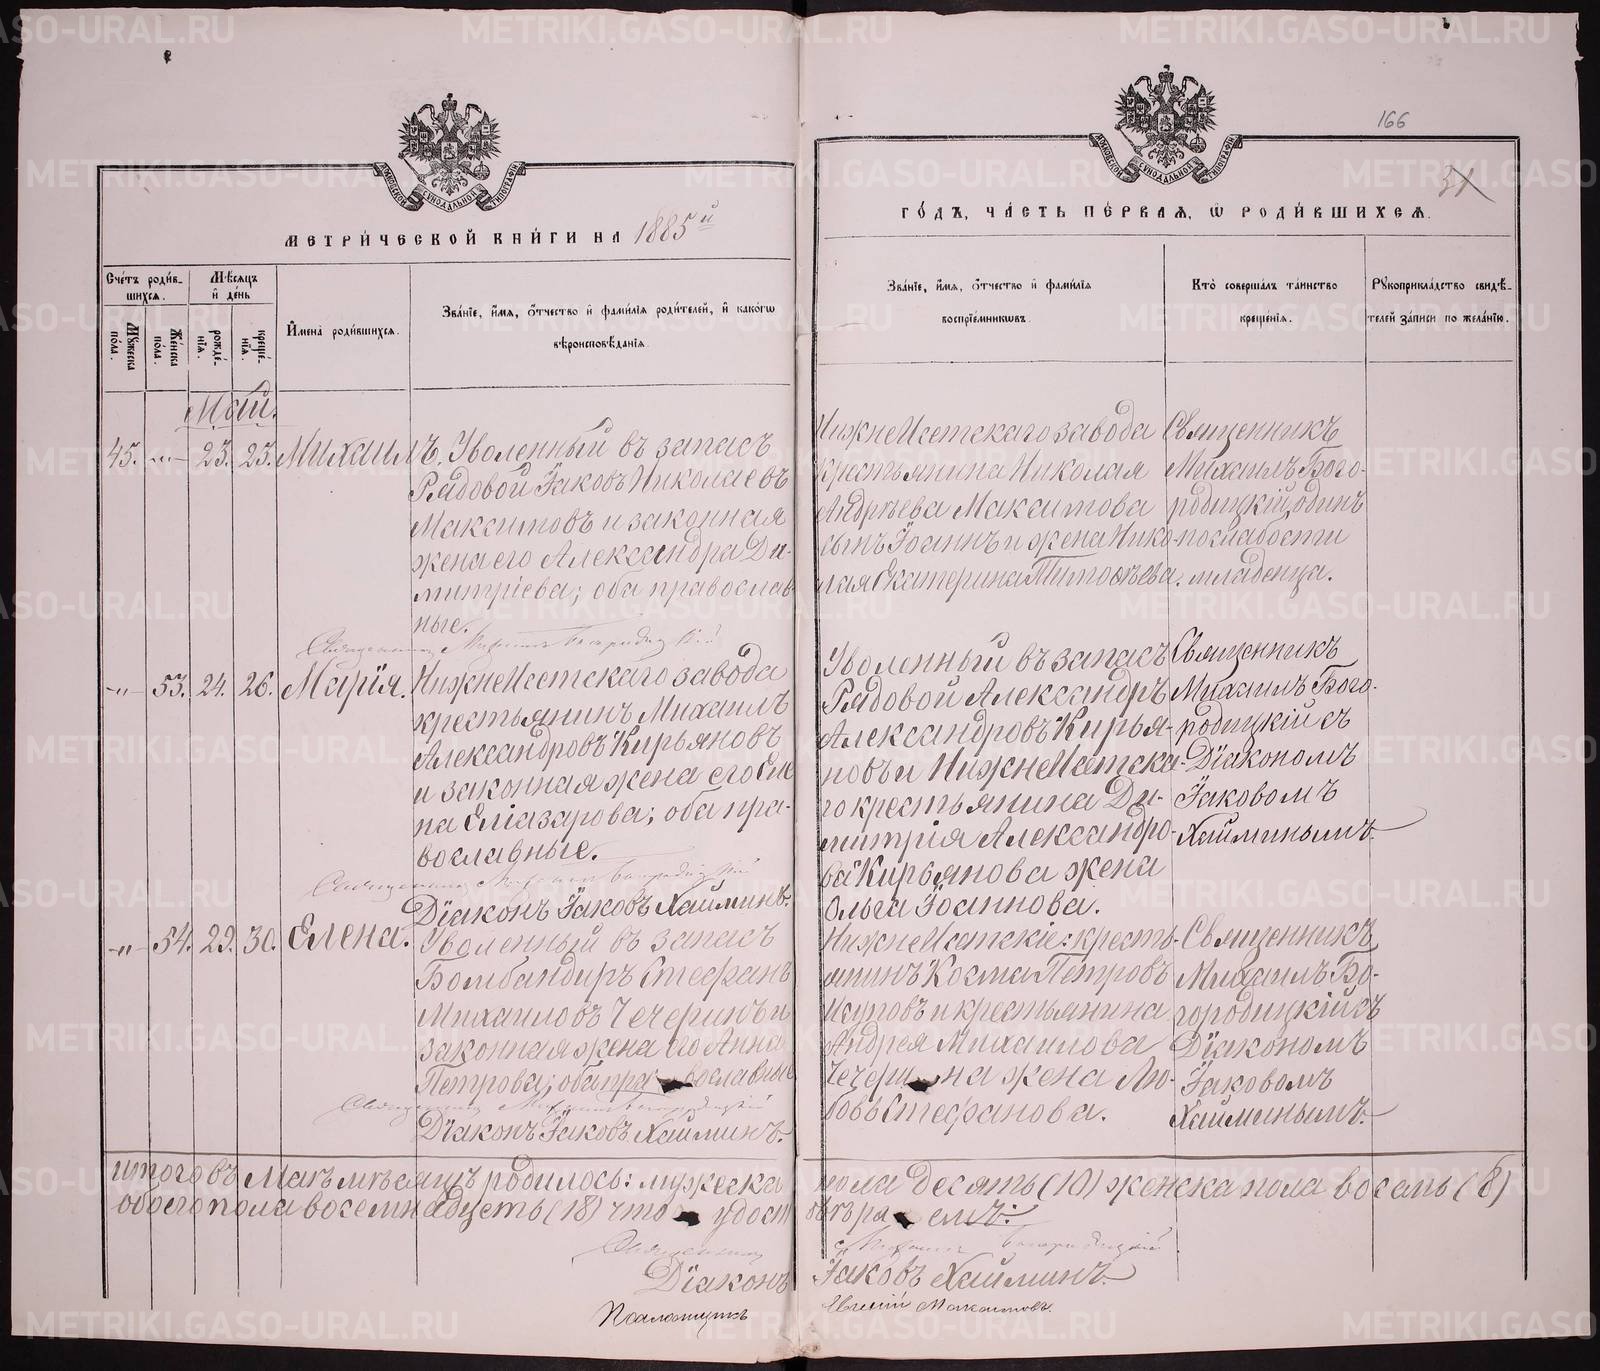 166
31
МОСКОВСКОЙ СѴНОДАЛЬНОЙ ТИПОГРАФІИ
МОСКОВСКОЙ СѴНОДАЛЬНОЙ ТИПОГРАФІИ
МЕТРИ́ЧЕСКОЙ КНИ́ГИ НА 1885й
ГО́ДЪ, ЧА́СТЬ ПЕ́РВАЯ, Ѽ РОДИ́ВШИХСЯ.
Сче́тъ роди́в-
шихся.
Мѣ́сяцъ
и́ де́нь
Му́жеска
по́ла.
Же́нска
по́ла.
рожде́-
нія.
креще́-
нія.
И҆мена̀ роди́вшихся.
Зва́ніе, и҆́мя, ѻ҆́тчество и҆ фами́лія роди́телей, и҆ како́гѡ
вѣроисповѣ́данія.
Зва́ніе, и҆́мя, ѻ҆́тчество и҆ фами́лія
воспріе́мниковъ.
Кто̀ соверша́лъ та́инство
креще́нія.
Рꙋкоприкла́дство свидѣ́-
телей за́писи по жела́нію.
Май.
45. -"- 23. 23. Михаилъ. Уволенный въ запасъ
Рядовой Іаковъ Николаевъ
Максимовъ и законная
жена его Александра Ди-
митріева; оба православ
ные.
НижнеИсетскаго завода
крестьянина Николая
Андреева Максимова
сынъ Іоаннъ и жена Нико-
лая Екатерина Тимофѣева.
Священникъ
Михаилъ Бого-
родицкій одинъ
по слабости
младенца.
Священникъ Михаилъ Богородицкій
-"- 53. 24. 26. Марія. НижнеИсетскаго завода
крестьянинъ Михаилъ
Александровъ Кирьяновъ
и законная жена его Еле
на Еліазарова; оба пра-
вославные.
Уволенный въ запасъ
Рядовой Александръ
Александровъ Кирья-
новъ и НижнеИсетска-
го крестьянина Ди-
митрія Александро-
ва Кирьянова жена
Ольга Іоаннова.
Священникъ
Михаилъ Бого-
родицкій съ
Діакономъ
Іаковомъ
Хайминымъ.
Священникъ Михаилъ Богородицкій
Діаконъ Іаковъ Хайминъ.
-"- 54. 29. 30. Елена. Уволенный въ запасъ
Бомбандиръ Стефанъ
Михаиловъ Чечеринъ и
законная жена его Анна
Петрова; оба православные
НижнеИсетскіе: кресть-
янинъ Косма Петровъ
и крестьянина
Андрея Михаилова
Чечерина жена Лю-
бовь Стефанова.
Священникъ
Михаилъ Бо-
городицкій съ
Діакономъ
Іаковомъ
Хайминымъ.
Священникъ Михаилъ Богородицкій
Діаконъ Іаковъ Хайминъ.
итого въ Маѣ мѣсяцѣ родилось: мужеска пола десять (10) женска пола восемь (8)
обоего пола восемнадцать (18) что удост овѣряемъ:
Священникъ Михаилъ Богородицкій
Діаконъ Іаковъ Хайминъ.
Псаломщикъ Евгеній Максимовъ.
METRIKI.GASO-URAL.RU